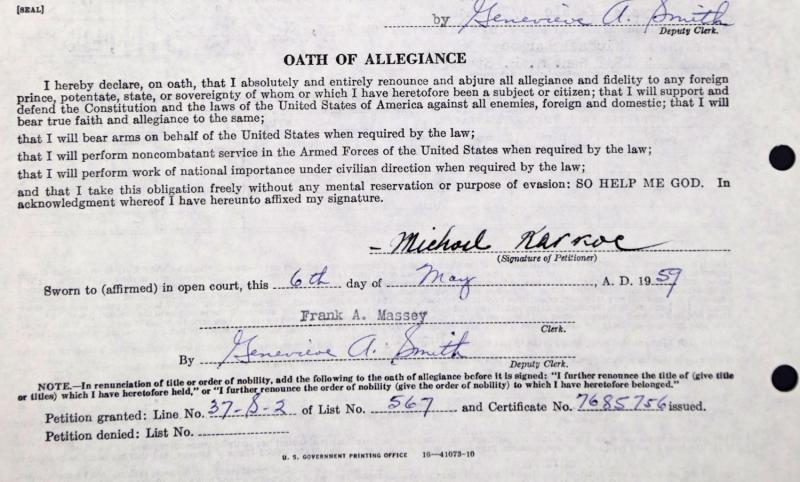 [SEAL]
by Genevieve A. Smith
Deputy Clerk.
OATH OF ALLEGIANCE
I hereby declare, on oath, that I absolutely and entirely renounce and abjure all allegiance and fidelity to any foreign
prince, potentate, state, or sovereignty of whom or which I have heretofore been a subject or citizen; that I will support and
defend the Constitution and the laws of the United States of America against all enemies, foreign and domestic; that I will
bear true faith and allegiance to the same;
that I will bear arms on behalf of the United States when required by the law;
that I will perform noncombatant service in the Armed Forces of the United States when required by the law;
that I will perform work of national importance under civilian direction when required by the law;
and that I take this obligation freely without any mental reservation or purpose of evasion: SO HELP ME GOD. In
acknowledgment whereof I have hereunto affixed my signature.
Michael Karkoc
(Signature of Petitioner)
Sworn to (affirmed) in open court, this 6th day of May, A. D. 1959
Frank A. Massey
Clerk.
By Genevieve A. Smith
Deputy Clerk.
NOTE.—In renunciation of title or order of nobility, add the following to the oath of allegiance before it is signed: "I further renounce the title of (give title
or titles) which I have heretofore held," or "I further renounce the order of nobility (give the order of nobility) to which I have heretofore belonged."
Petition granted: Line No. 37-S-2 of List No. 567 and Certificate No. 7685756 issued.
Petition denied: List No.
U. S. GOVERNMENT PRINTING OFFICE 16—41073-10